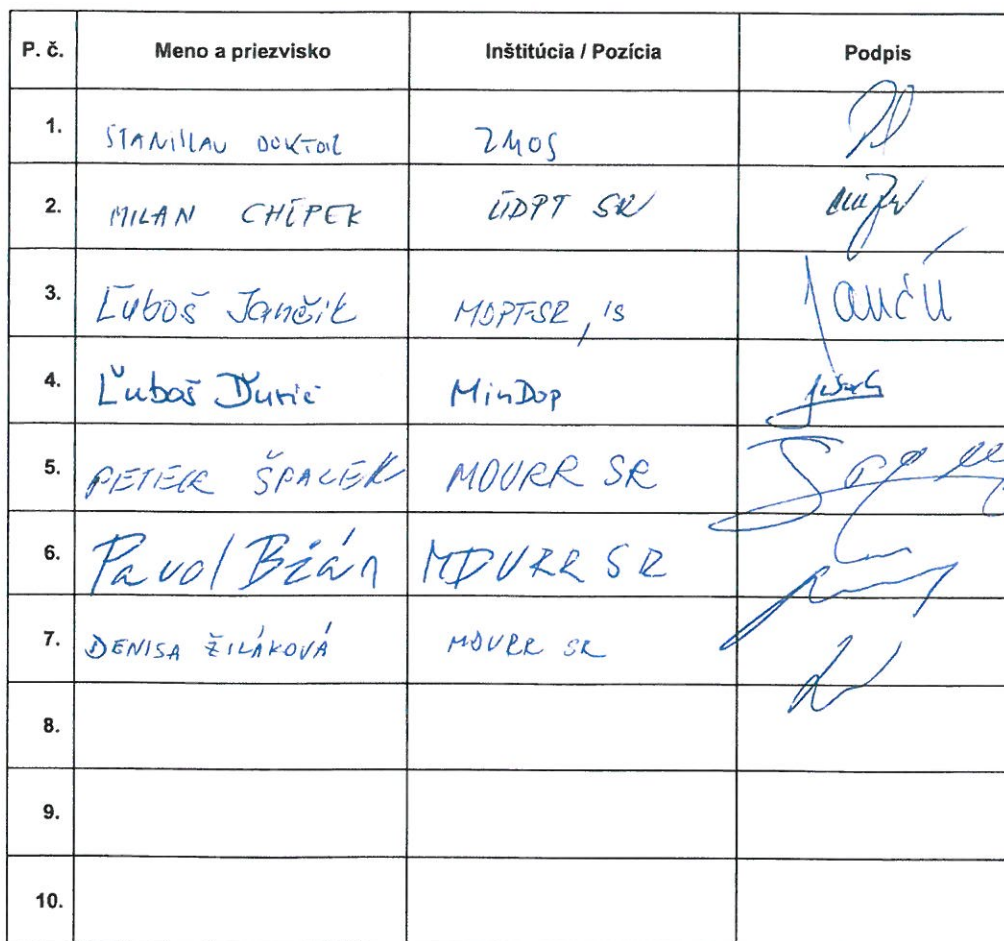 P. č. Meno a priezvisko Inštitúcia / Pozícia Podpis
1. STANISLAV DOKTOR ZMOS
2. MILAN CHĹPEK ÚDPT SR
3. Ľuboš Jančík MDPT SR, IS
4. Ľuboš Ďurič MinDop
5. PETER ŠPALEK MDVRR SR
6. Pavol Bžán MDVRR SR
7. DENISA ŽILÁKOVÁ MDVRR SR
8.
9.
10.